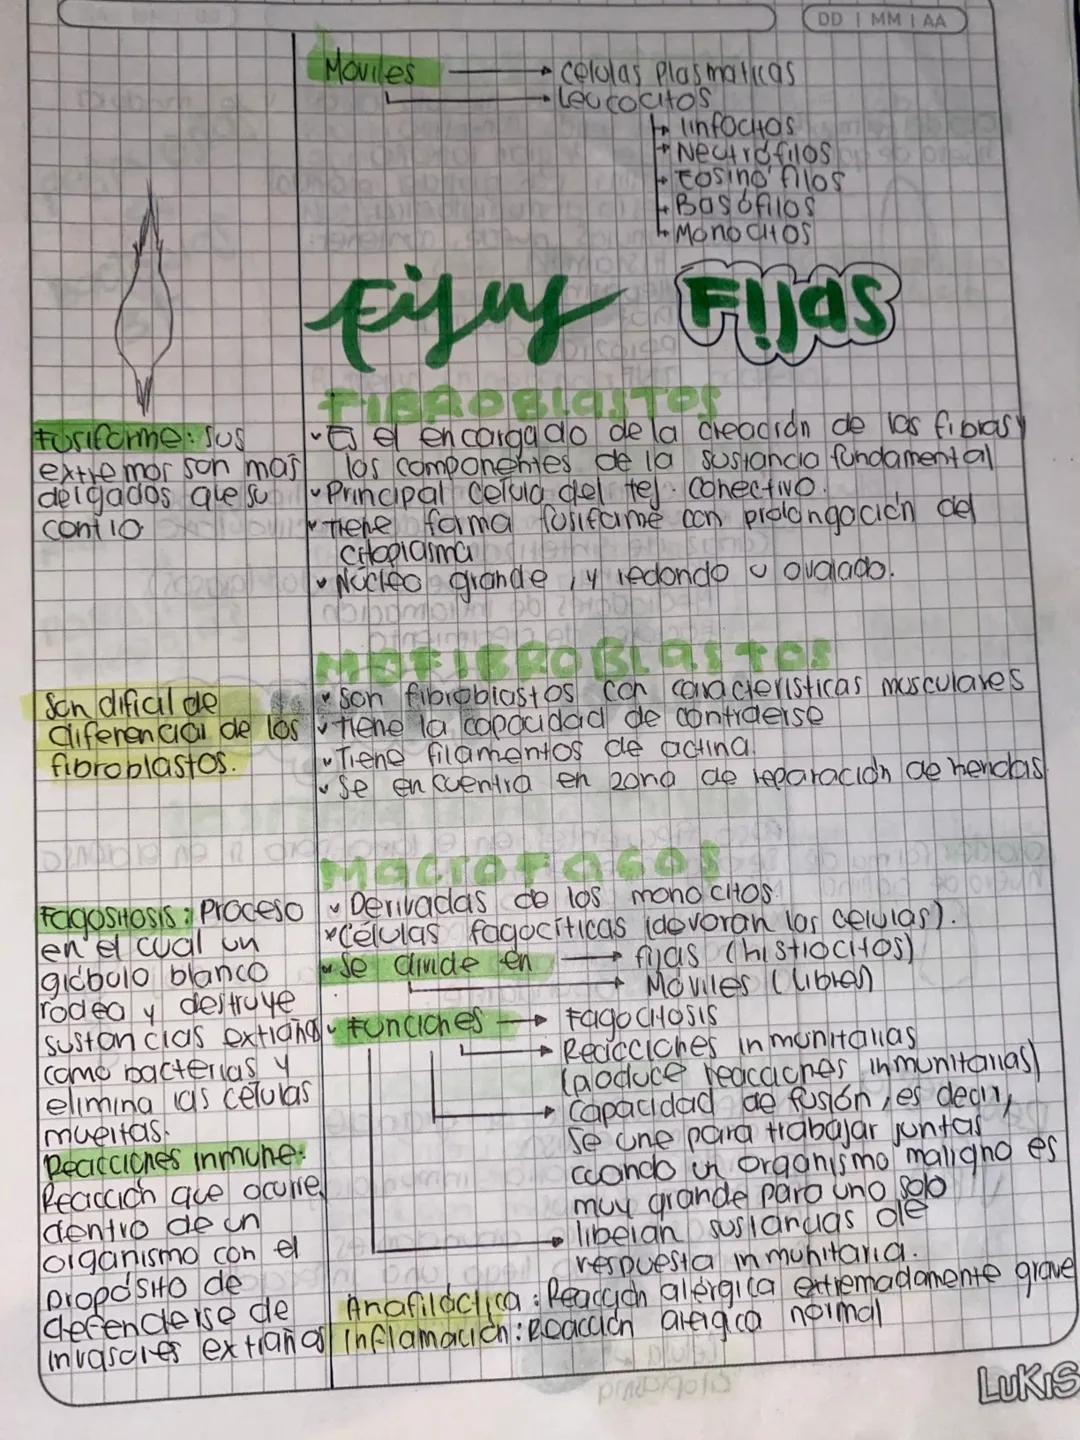 DD | MM | AA
Moviles → celulas plasmaticas
→ Leucocitos
→ linfocitos
→ Neutrófilos
→ Eosinófilos
→ Basófilos
→ Monocitos
Fijas Fijas
FIBROBLASTOS
Fusiforme: sus
extremos son mas
delgados que su
contio
✓ Es el encargado de la creación de las fibras y
los componentes de la sustancia fundamental
✓ Principal celula del tej. conectivo.
✓ Tiene forma fusiforme con prolongación del
citoplasma
✓ Núcleo grande, y redondo u ovalado.
MOFIBROBLASTOS
Son dificil de
diferenciar de los
fibroblastos.
✓ son fibroblastos con caracteristicas musculares
✓ tiene la capacidad de contraerse
✓ Tiene filamentos de actina.
✓ se encuentra en zona de reparación de heridas
Macrofagos
Fagositosis: Proceso
en el cual un
glóbulo blanco
rodea y destruye
sustancias extrañas
como bacterias y
elimina las celulas
muertas.
Reacciones inmune:
Reacción que ocurre
dentro de un
organismo con el
proposito de
defenderse de
invasores extraños
✓ Derivadas de los monocitos.
✓ Células fagocíticas (devoran las celulas).
✓ Se divide en → fijas (histiocitos)
→ Móviles (libres)
✓ Funciones → Fagocitosis
→ Reacciones inmunitarias
(produce reacciones inmunitarias)
→ capacidad de fusión, es decir,
se une para trabajar juntas
cuando un organismo maligno es
muy grande para uno solo
→ liberan sustancias de
respuesta inmunitaria.
Anafiláctica: Reacción alérgica extremadamente grave
Inflamación: Reacción alergica normal
LUKIS